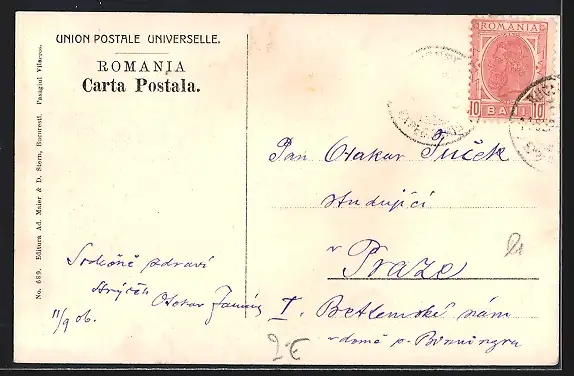 UNION POSTALE UNIVERSELLE.
ROMANIA
Carta Postala.
No. 689. Editura Ad. Maier & D. Stern, Bucuresti. Pasagiul Vilacros.
ROMANIA
10 BANI 10
Pan Otakar Tuček
studující
v Praze
I. Betlemské nám
v domě p. Binningra
Srdečně zdraví
strýček Otokar
11/9 06.
2€